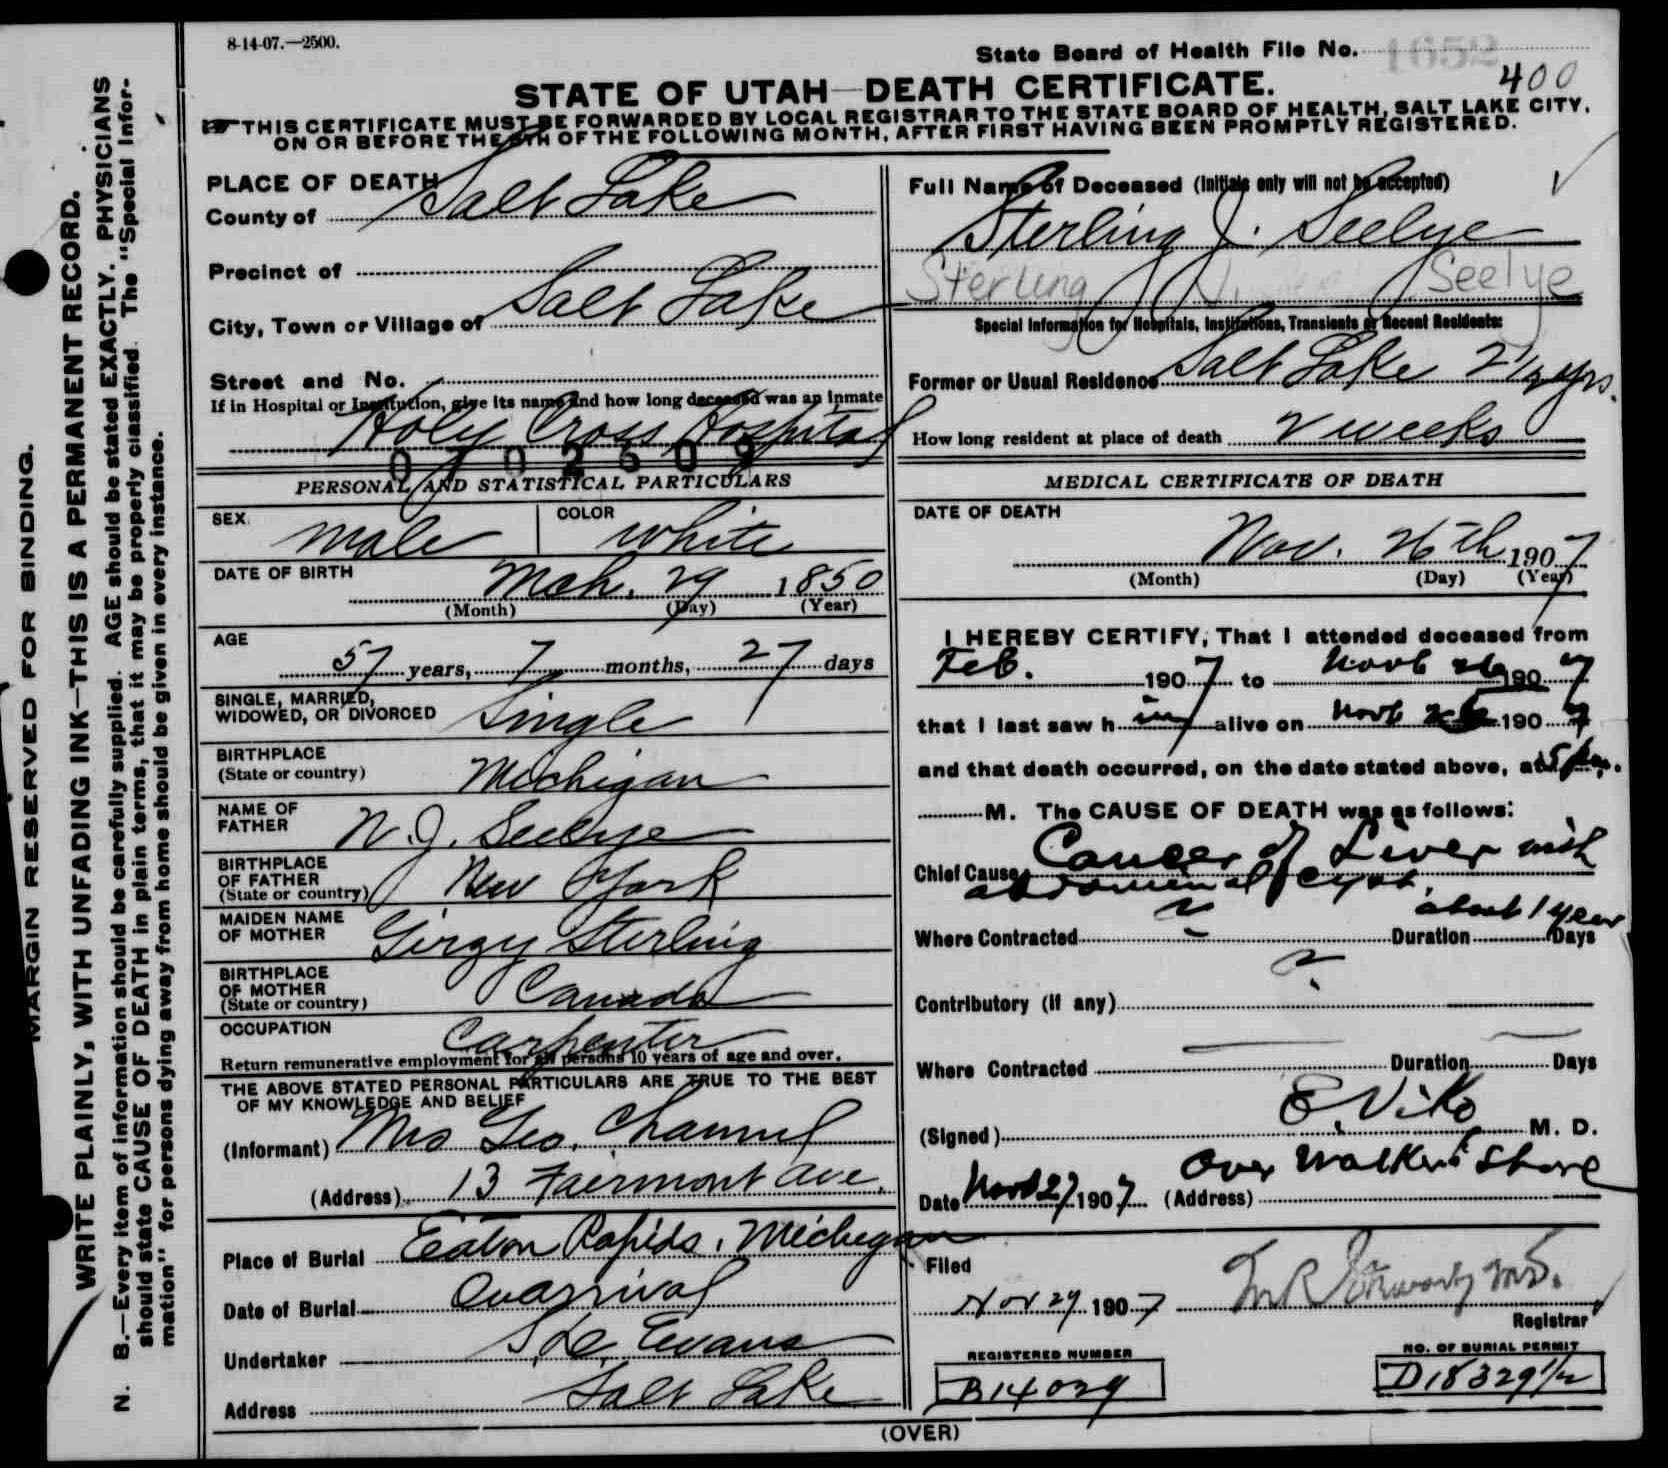 8-14-07.—2500.
State Board of Health File No. 1652
400
STATE OF UTAH—DEATH CERTIFICATE.
THIS CERTIFICATE MUST BE FORWARDED BY LOCAL REGISTRAR TO THE STATE BOARD OF HEALTH, SALT LAKE CITY,
ON OR BEFORE THE 5TH OF THE FOLLOWING MONTH, AFTER FIRST HAVING BEEN PROMPTLY REGISTERED.
MARGIN RESERVED FOR BINDING.
WRITE PLAINLY, WITH UNFADING INK—THIS IS A PERMANENT RECORD.
N. B.—Every item of information should be carefully supplied. AGE should be stated EXACTLY. PHYSICIANS
should state CAUSE OF DEATH in plain terms, that it may be properly classified. The "Special Infor-
mation" for persons dying away from home should be given in every instance.
PLACE OF DEATH
County of Salt Lake
Precinct of
City, Town or Village of Salt Lake
Street and No.
If in Hospital or Institution, give its name and how long deceased was an Inmate
Holy Cross Hospital
0702609
PERSONAL AND STATISTICAL PARTICULARS
SEX Male COLOR White
DATE OF BIRTH Mch. 29 1850
(Month) (Day) (Year)
AGE
57 years, 7 months, 27 days
SINGLE, MARRIED,
WIDOWED, OR DIVORCED Single
BIRTHPLACE
(State or country) Michigan
NAME OF
FATHER N. J. Seelye
BIRTHPLACE
OF FATHER
(State or country) New York
MAIDEN NAME
OF MOTHER Sterling
BIRTHPLACE
OF MOTHER
(State or country) Canada
OCCUPATION Carpenter
Return remunerative employment for all persons 10 years of age and over.
THE ABOVE STATED PERSONAL PARTICULARS ARE TRUE TO THE BEST
OF MY KNOWLEDGE AND BELIEF
(Informant) Mrs Geo. Channel
(Address) 13 Fairmont Ave.
Place of Burial Eaton Rapids, Michigan
Date of Burial On arrival
Undertaker Evans
Address Salt Lake
Full Name of Deceased (Initials only will not be accepted)
Sterling J. Seelye
Sterling J. Seelye
Special Information for Hospitals, Institutions, Transients or Recent Residents:
Former or Usual Residence Salt Lake 2 1/2 yrs.
How long resident at place of death 2 weeks
MEDICAL CERTIFICATE OF DEATH
DATE OF DEATH
Nov. 26th 1907
(Month) (Day) (Year)
I HEREBY CERTIFY, That I attended deceased from
Feb. 1907 to Novb 26 1907
that I last saw h im alive on Novb 26 1907
and that death occurred, on the date stated above, at 5 pm.
M. The CAUSE OF DEATH was as follows:
Chief Cause Cancer of Liver with
abdominal cyst.
about 1 year
Where Contracted ? Duration Days
Contributory (If any) ?
Where Contracted — Duration — Days
(Signed) E. Viko M. D.
Over Walkers Store
Date Novb 27 1907 (Address)
Filed
Nov 29 1907
Registrar
REGISTERED NUMBER
B14029
NO. OF BURIAL PERMIT
D18329 1/2
(OVER)